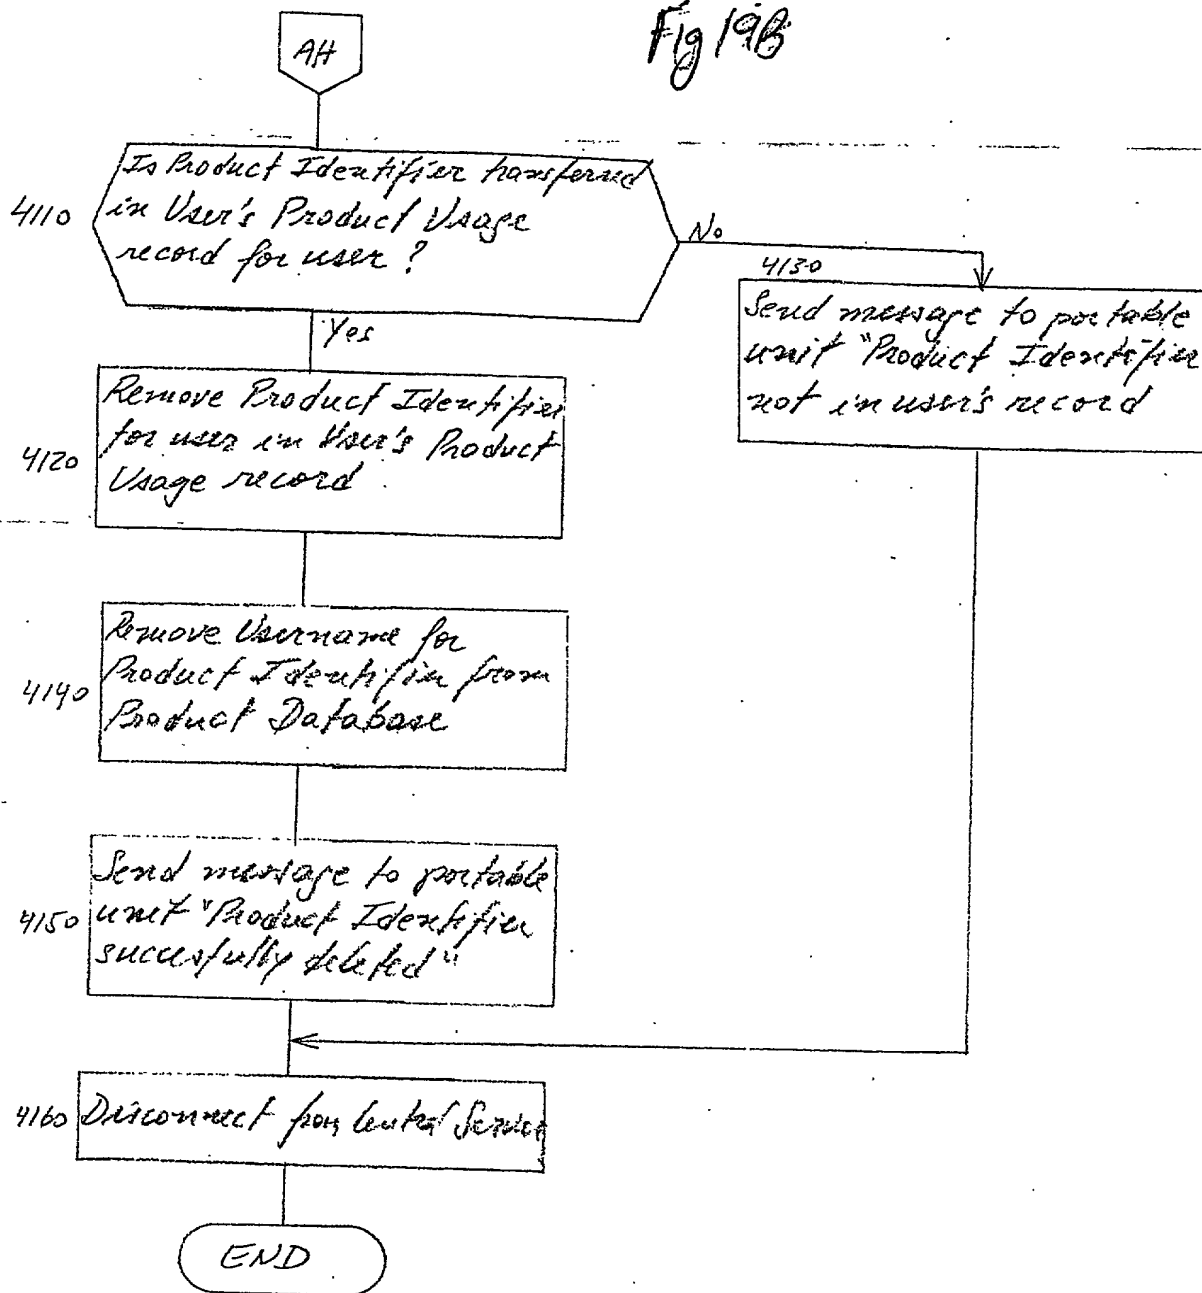 Fig 19B
AH
4110
Is Product Identifier transferred
in User's Product Usage
record for user ?
No
Yes
4130
Send message to portable
unit "Product Identifier
not in user's record
4120
Remove Product Identifier
for user in User's Product
Usage record
4140
Remove Username for
Product Identifier from
Product Database
4150
Send message to portable
unit "Product Identifier
succesfully deleted"
4160
Disconnect from Central Server
END